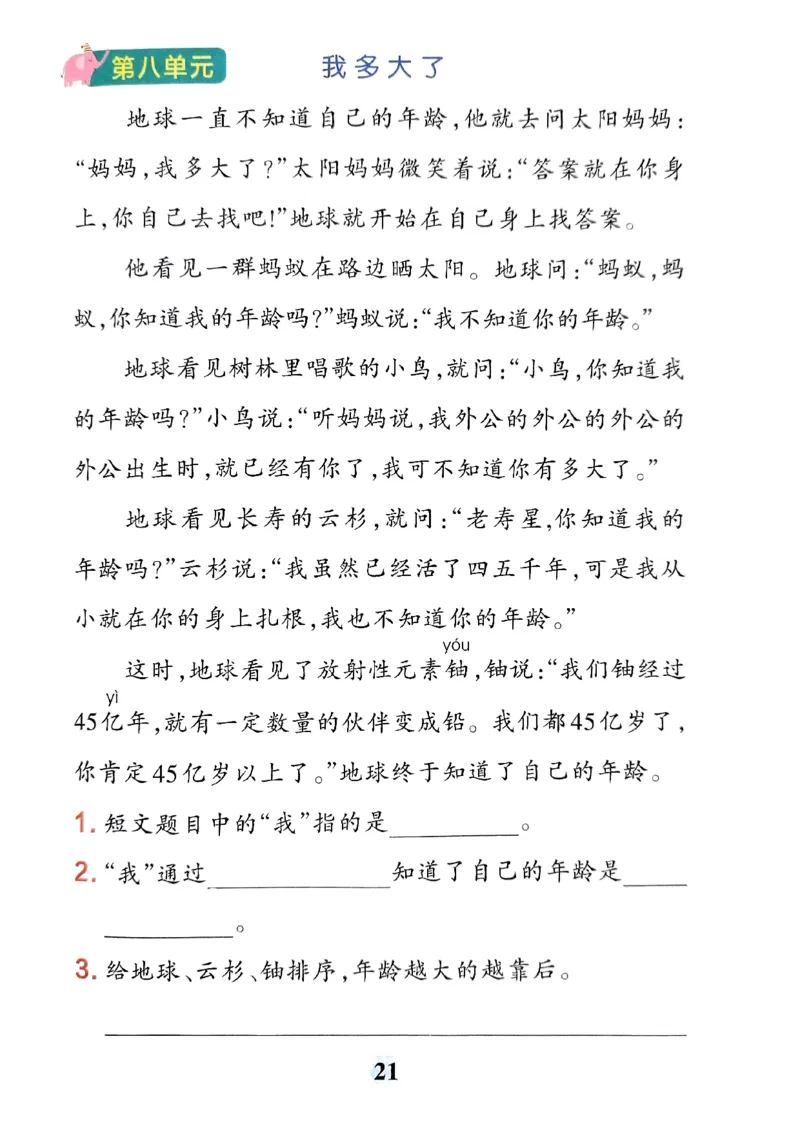 第八单元 我多大了
地球一直不知道自己的年龄,他就去问太阳妈妈:
“妈妈,我多大了?”太阳妈妈微笑着说:“答案就在你身
上,你自己去找吧!”地球就开始在自己身上找答案。
他看见一群蚂蚁在路边晒太阳。地球问:“蚂蚁,蚂
蚁,你知道我的年龄吗?”蚂蚁说:“我不知道你的年龄。”
地球看见树林里唱歌的小鸟,就问:“小鸟,你知道我
的年龄吗?”小鸟说:“听妈妈说,我外公的外公的外公的
外公出生时,就已经有你了,我可不知道你有多大了。”
地球看见长寿的云杉,就问:“老寿星,你知道我的
年龄吗?”云杉说:“我虽然已经活了四五千年,可是我从
小就在你的身上扎根,我也不知道你的年龄。”
yóu
这时,地球看见了放射性元素铀,铀说:“我们铀经过
yì
45亿年,就有一定数量的伙伴变成铅。我们都45亿岁了,
你肯定45亿岁以上了。”地球终于知道了自己的年龄。
1. 短文题目中的“我”指的是__________。
2. “我”通过______________知道了自己的年龄是_____
__________。
3. 给地球、云杉、铀排序,年龄越大的越靠后。
21